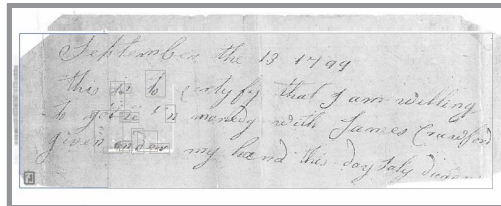 September the 13 1799
this is to certyfy that I am willing
to go in maredg with James Crawford
given under my hand this day